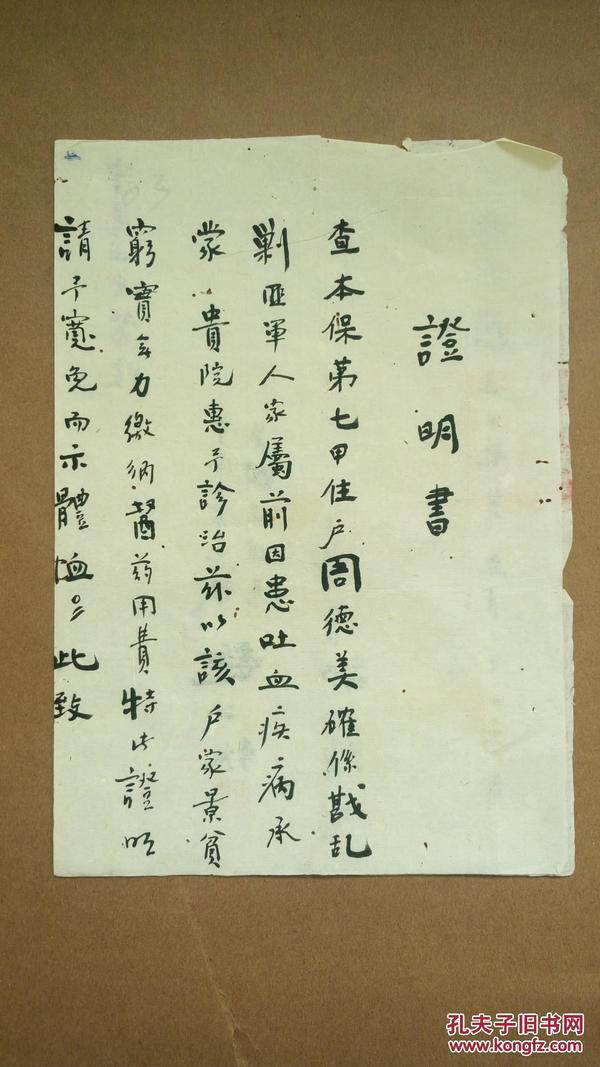 證明書
查本保第七甲住户周德美確係戡乱
剿匪軍人家屬前因患吐血疾病承
蒙貴院惠予診治茲以該户家景貧
窮實無力繳納醫药用費特此證明
請予寬免而示體恤此致
孔夫子旧书网
www.kongfz.com